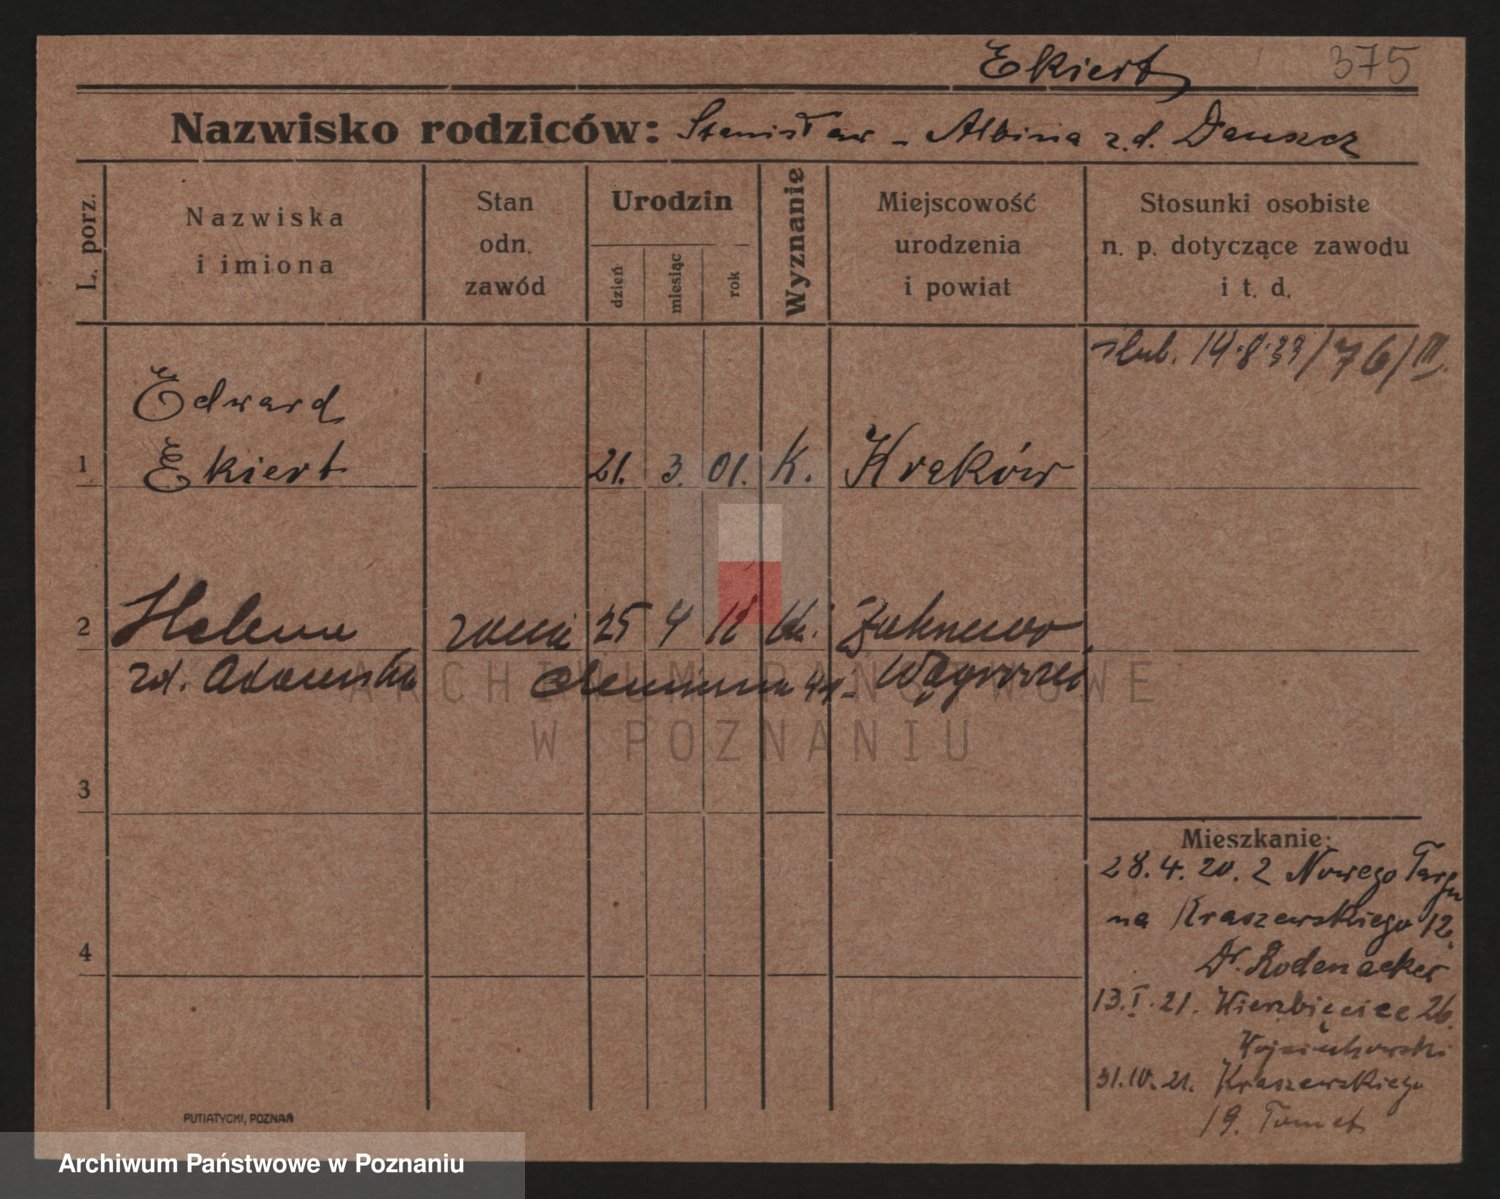 Ekiert 375
Nazwisko rodziców: Stanisław - Albina z.d. Dauszcz
L. porz.
Nazwiska
i imiona
Stan
odn.
zawód
Urodzin
dzień
miesiąc
rok
Wyznanie
Miejscowość
urodzenia
i powiat
Stosunki osobiste
n. p. dotyczące zawodu
i t. d.
ślub. 14.8.39/76/III.
Edward
1 Ekiert 21. 3. 01. K. Kraków
2 Helena 25 4
zd. Adamska Wągrowiec
3
4
Mieszkanie:
28.4.20. z Nowego Targu
na Kraszewskiego 12.
Dr. Rodenacker
13.I.21. Wierzbięcice 26.
Wojciechowski
31.IV.21. Kraszewskiego
19. Tomet
PUTIATYCKI, POZNAŃ
ARCHIWUM PAŃSTWOWE
W POZNANIU
Archiwum Państwowe w Poznaniu